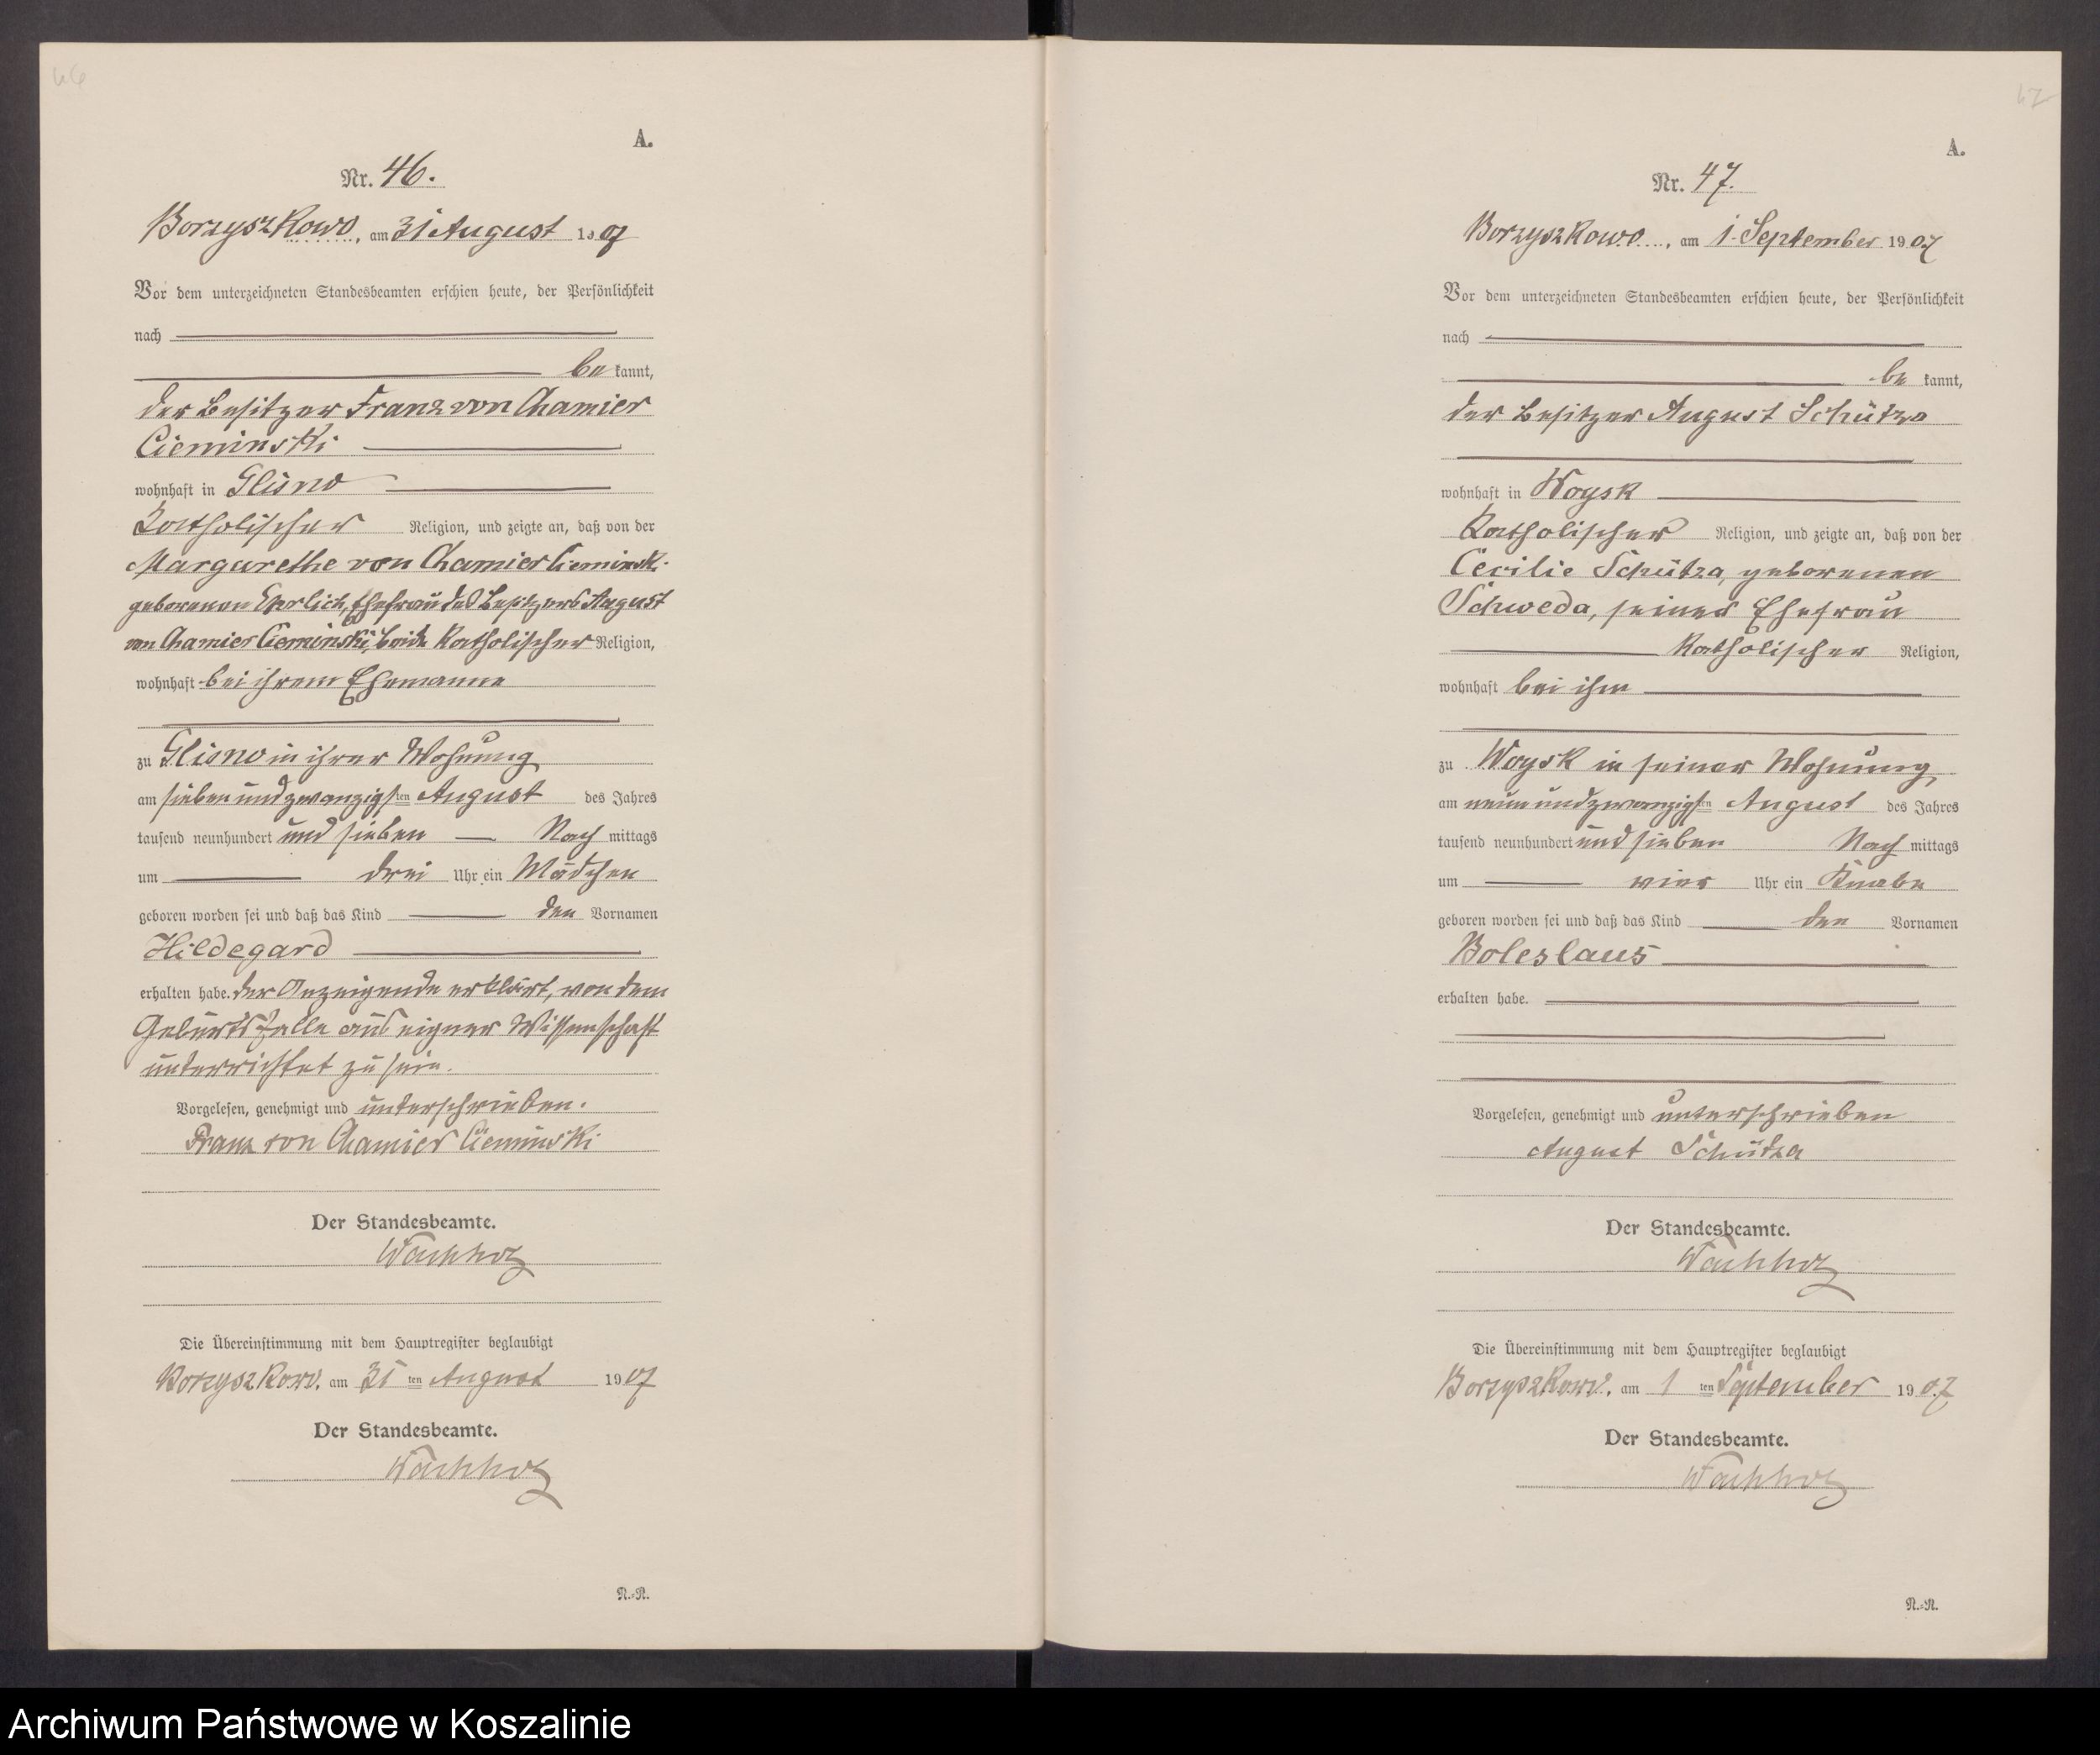 46
A.
Nr. 46.
Borzyszkowo, am 31 August 1907
Vor dem unterzeichneten Standesbeamten erschien heute, der Persönlichkeit
nach
be kannt,
der Besitzer Franz von Chamier
Cieminski
wohnhaft in Glisno
Katholischer Religion, und zeigte an, daß von der
Margarethe von Chamier Cieminski
geborenen Ehrlich, Ehefrau des Besitzers August
von Chamier Cieminski, beide Katholischer Religion,
wohnhaft bei ihrem Ehemanne
zu Glisno in ihrer Wohnung
am sieben und zwanzigsten August des Jahres
tausend neunhundert und sieben Nach mittags
um drei Uhr ein Mädchen
geboren worden sei und daß das Kind den Vornamen
Hildegard
erhalten habe. der Anzeigende erklärt, von dem
Geburtsfalle aus eigner Wissenschaft
unterrichtet zu sein.
Vorgelesen, genehmigt und unterschrieben.
Franz von Chamier Cieminski
Der Standesbeamte.
Wachholz
Die Übereinstimmung mit dem Hauptregister beglaubigt
Borzyszkowo, am 31 ten August 1907
Der Standesbeamte.
Wachholz
R.=R.
47
A.
Nr. 47.
Borzyszkowo, am 1. September 1907
Vor dem unterzeichneten Standesbeamten erschien heute, der Persönlichkeit
nach
be kannt,
der Besitzer August Schütza
wohnhaft in Woysk
Katholischer Religion, und zeigte an, daß von der
Cecilie Schütza, geborenen
Schweda, seiner Ehefrau
Katholischer Religion,
wohnhaft bei ihm
zu Woysk in seiner Wohnung
am neun und zwanzigsten August des Jahres
tausend neunhundert und sieben Nach mittags
um vier Uhr ein Knabe
geboren worden sei und daß das Kind den Vornamen
Boleslaus
erhalten habe.
Vorgelesen, genehmigt und unterschrieben
August Schütza
Der Standesbeamte.
Wachholz
Die Übereinstimmung mit dem Hauptregister beglaubigt
Borzyszkowo, am 1 ten September 1907
Der Standesbeamte.
Wachholz
R.=R.
Archiwum Państwowe w Koszalinie